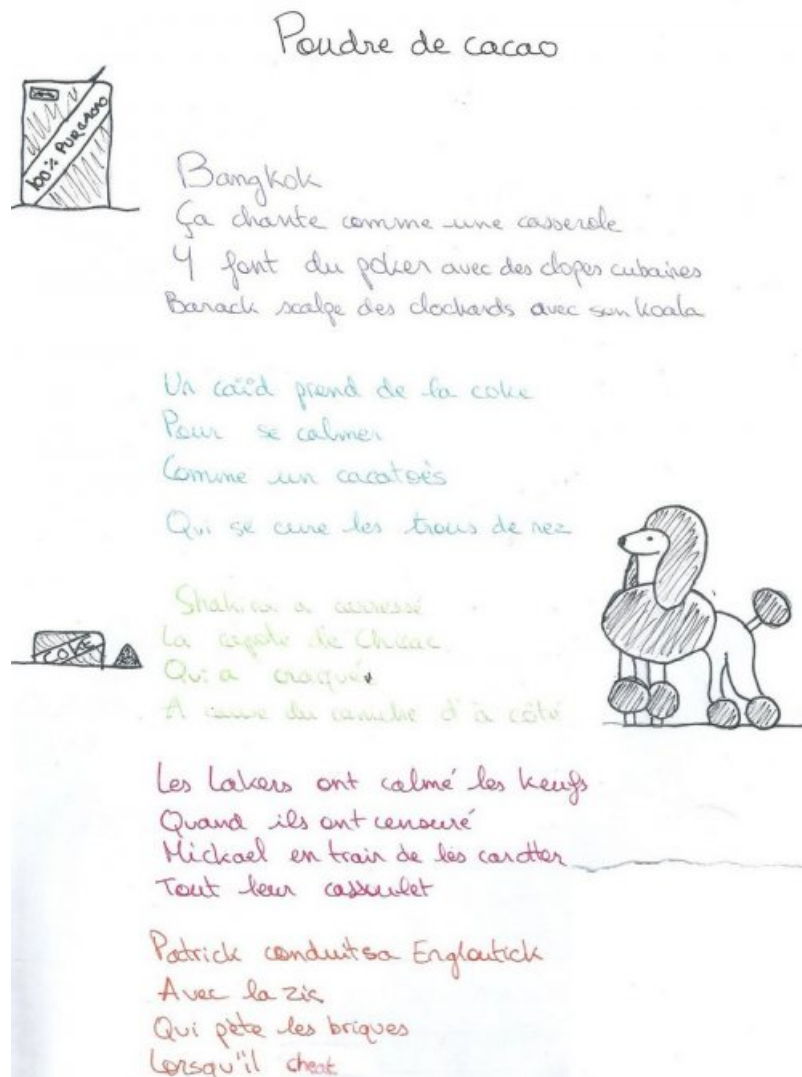 Poudre de cacao
100% PUR CACAO
Bangkok
Ça chante comme une casserole
4 font du poker avec des clopes cubaines
Barack scalpe des clochards avec son koala
Un caïd prend de la coke
Pour se calmer
Comme un cacatoès
Qui se cure les trous de nez
Shakira a caressé
La capote de Chirac
Qui a craqué
A cause du caniche d'à côté
COKE
Les Lakers ont calmé les keufs
Quand ils ont censuré
Mickael en train de les carotter
Tout leur cassoulet
Patrick conduit sa Engloutick
Avec la zic
Qui pète les briques
Lorsqu'il cheat